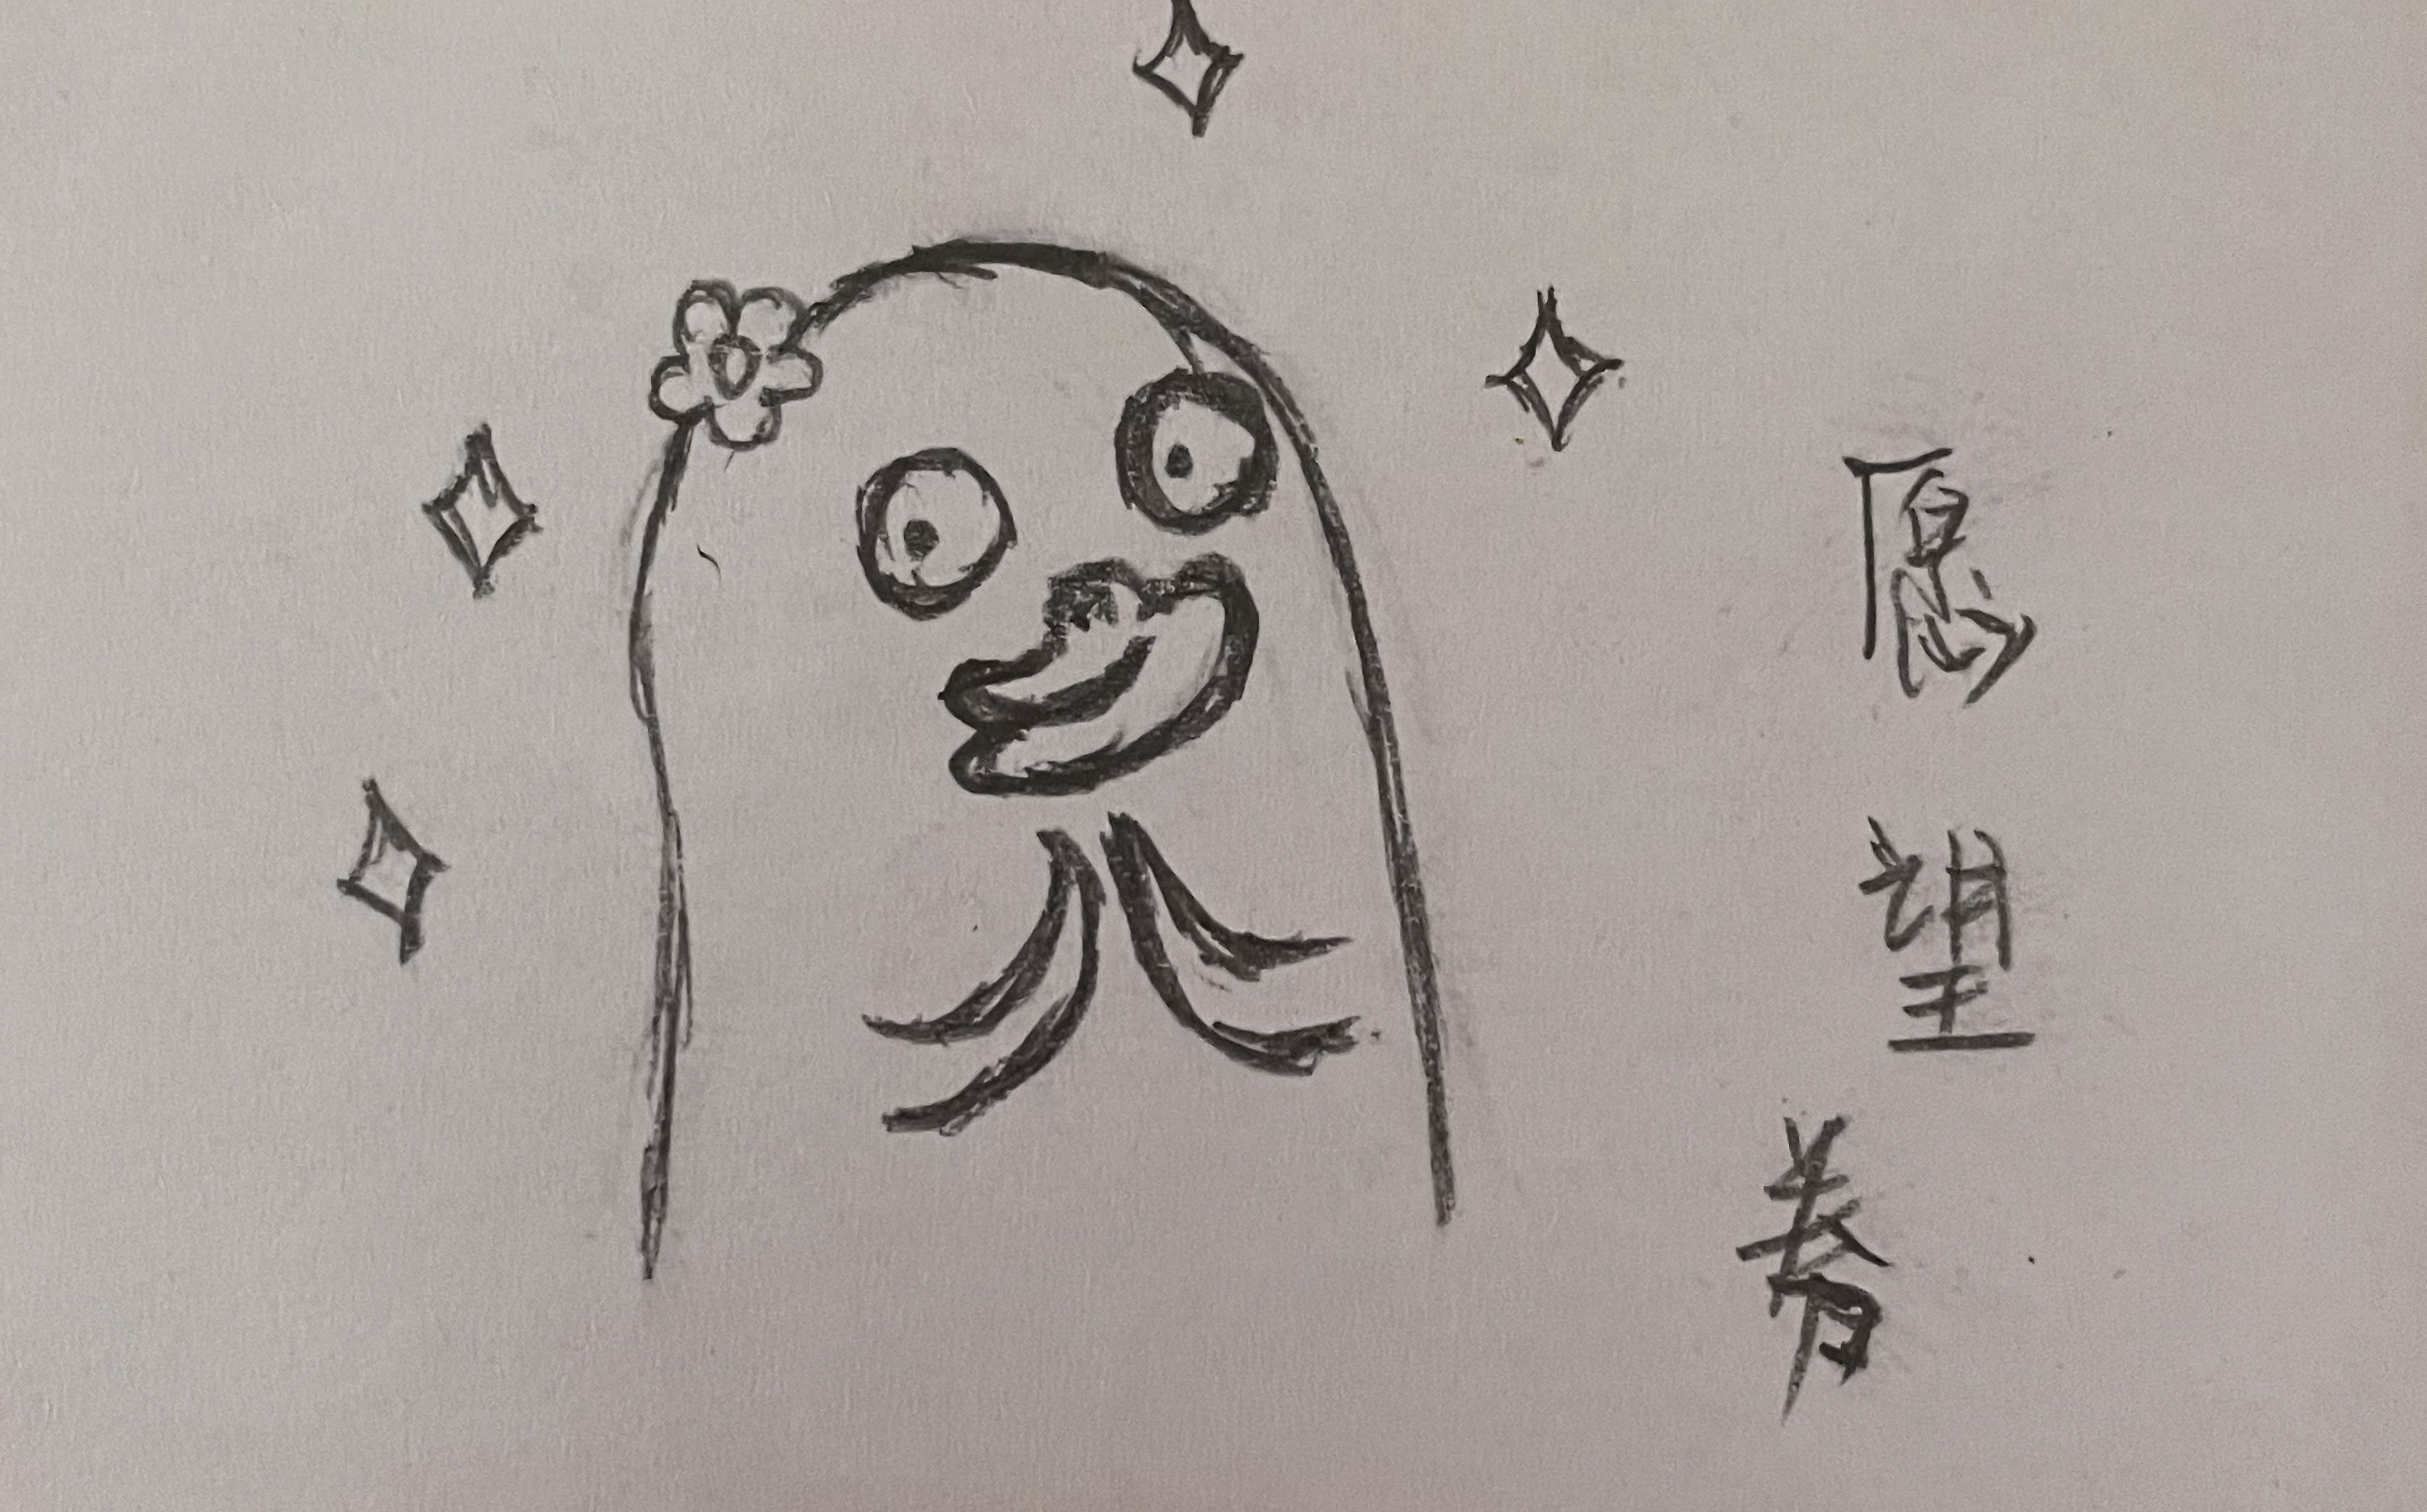 愿望券